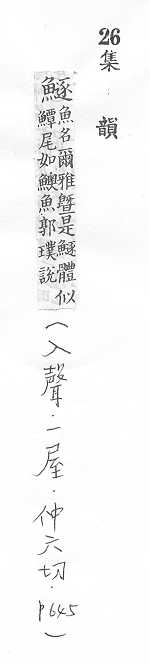 26集韻
鱁
魚名爾雅鱀是鱁體似
鱏尾如䱐魚郭璞說
(入聲.一屋.仲六切.p645)